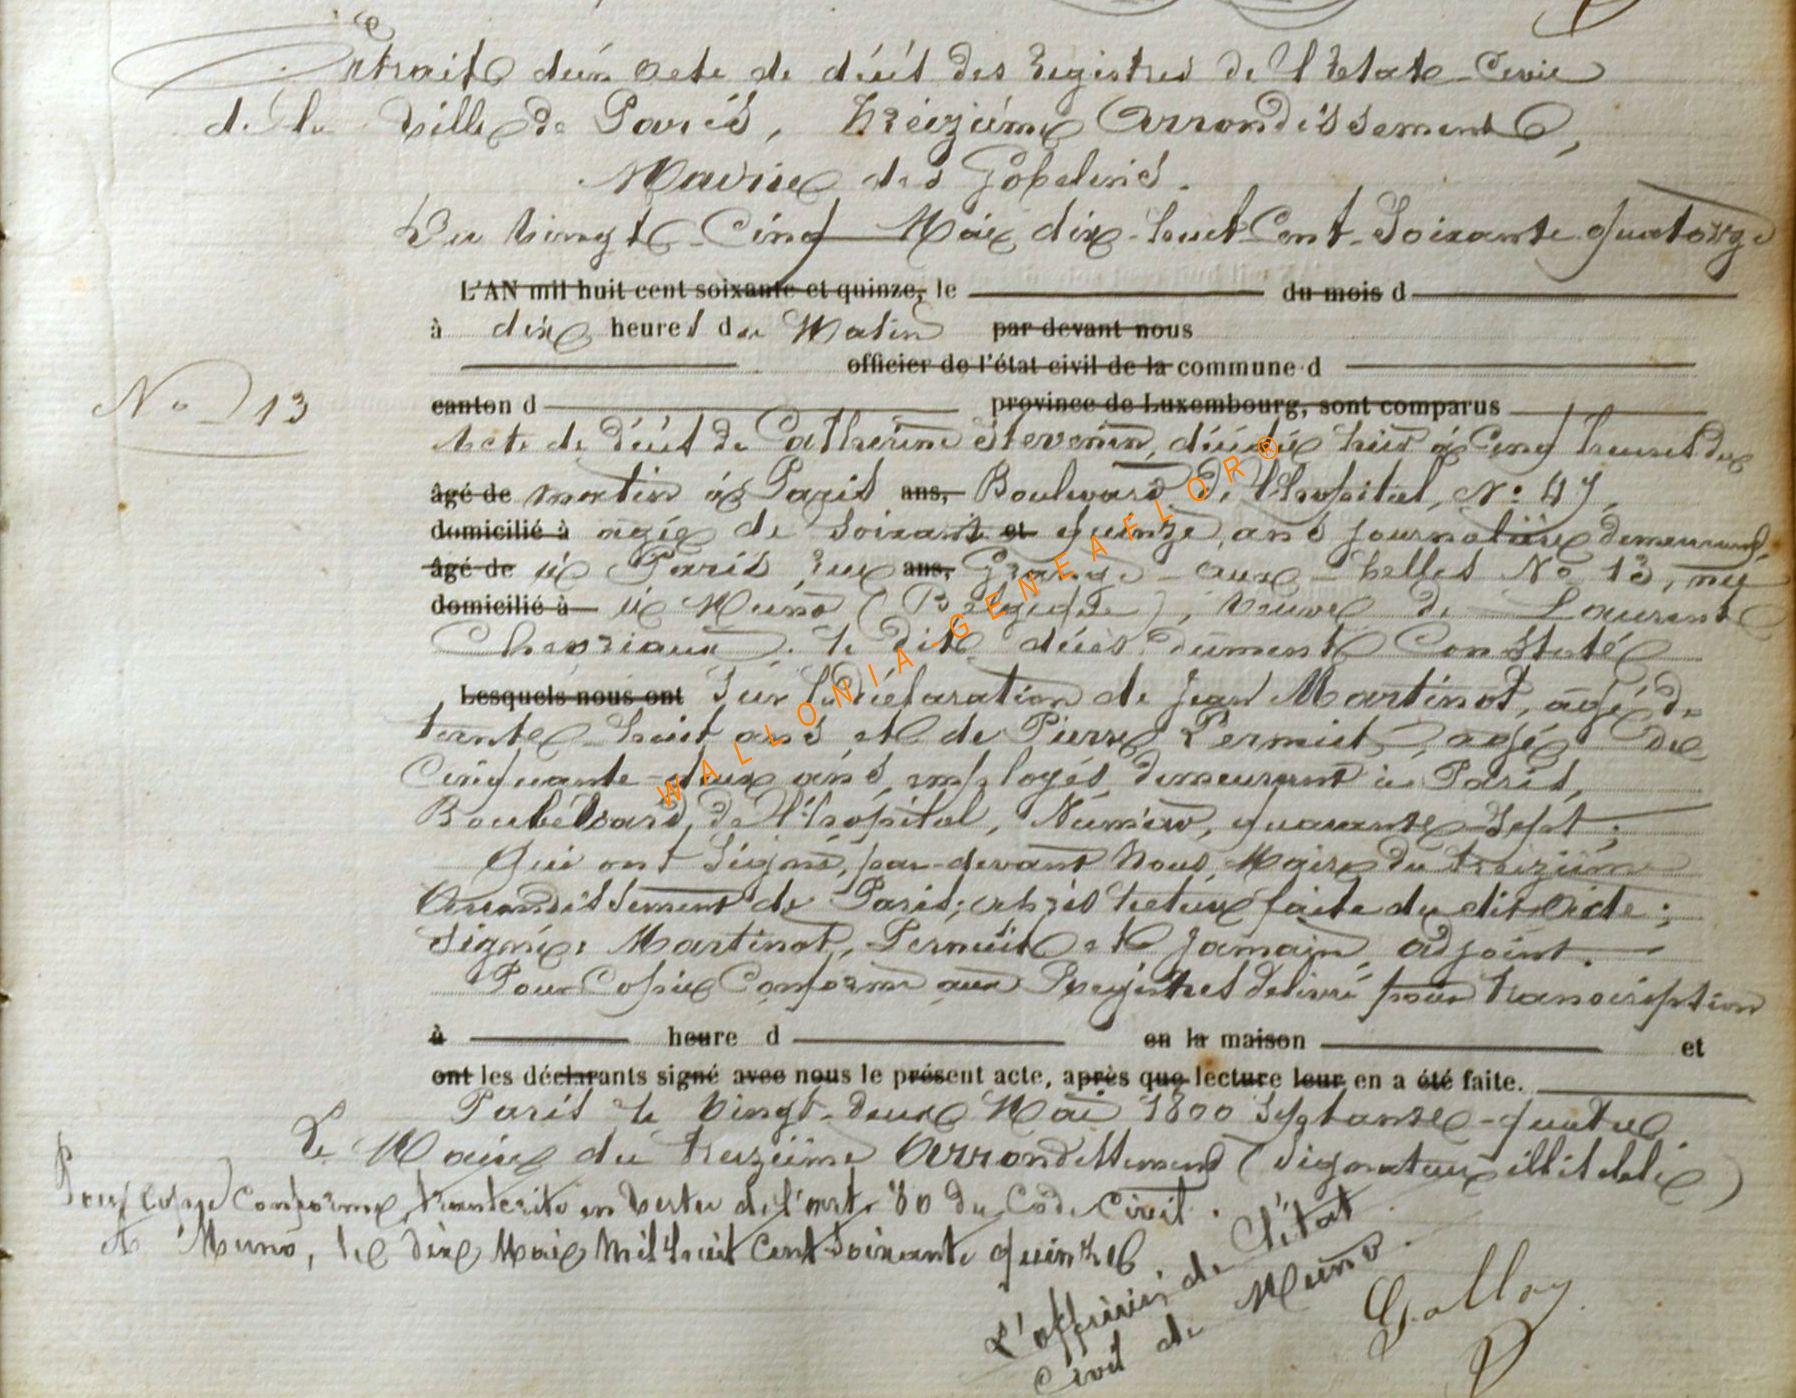 Extrait d'un acte de décès des registres de l'Etat Civil
de la Ville de Paris, treizième Arrondissement,
Mairie des Gobelins.
Du vingt-Cinq Mai dix-huit Cent-Soixante quatorze
L'AN mil huit cent soixante et quinze, le du mois d
à dix heures du Matin par devant nous
officier de l'état civil de la commune d
N° 13
canton d province de Luxembourg, sont comparus
Acte de décès de Catherine Stevenin, décédée hier à Cinq heures du
âgé de matin à Paris ans, Boulevard de l'hopital, N° 47,
domicilié à agée de soixante et quinze, ans journalière demeurant
âgé de à Paris rue ans, Grange-aux-belles N° 13, née
domicilié à à Muno (Belgique), veuve de Laurent
Chevriaux. le dit décès dûment Constaté
Lesquels nous ont Sur la déclaration de Jean Martinot, agé de
trente-huit ans et de Pierre Permuit, agé de
Cinquante-deux ans, employés, demeurant à Paris,
Boulevard de l'hopital, Numéro, quarante-Sept;
Qui ont Signé, par-devant Nous, Maire du treizième
Arrondissement de Paris; après lecture faite du dit Acte;
Signé: Martinot, Permuit et Jamain, adjoint.
Pour Copie Conforme aux Registres délivré pour transcription
à heure d en la maison et
ont les déclarants signé avec nous le présent acte, après que lecture leur en a été faite.
Paris le Vingt-deux Mai 1800 Septante-quatre.
Le Maire du treizième Arrondissement (Signature illisible)
Pour copie Conforme, transcrite en vertu de l'art. 80 du Code Civil.
A Muno, le dix Mai Mil huit Cent Soixante quinze.
L'officier de l'état
Civil de Muno.
Galloy
WALLONIA-GENEAFLOR®